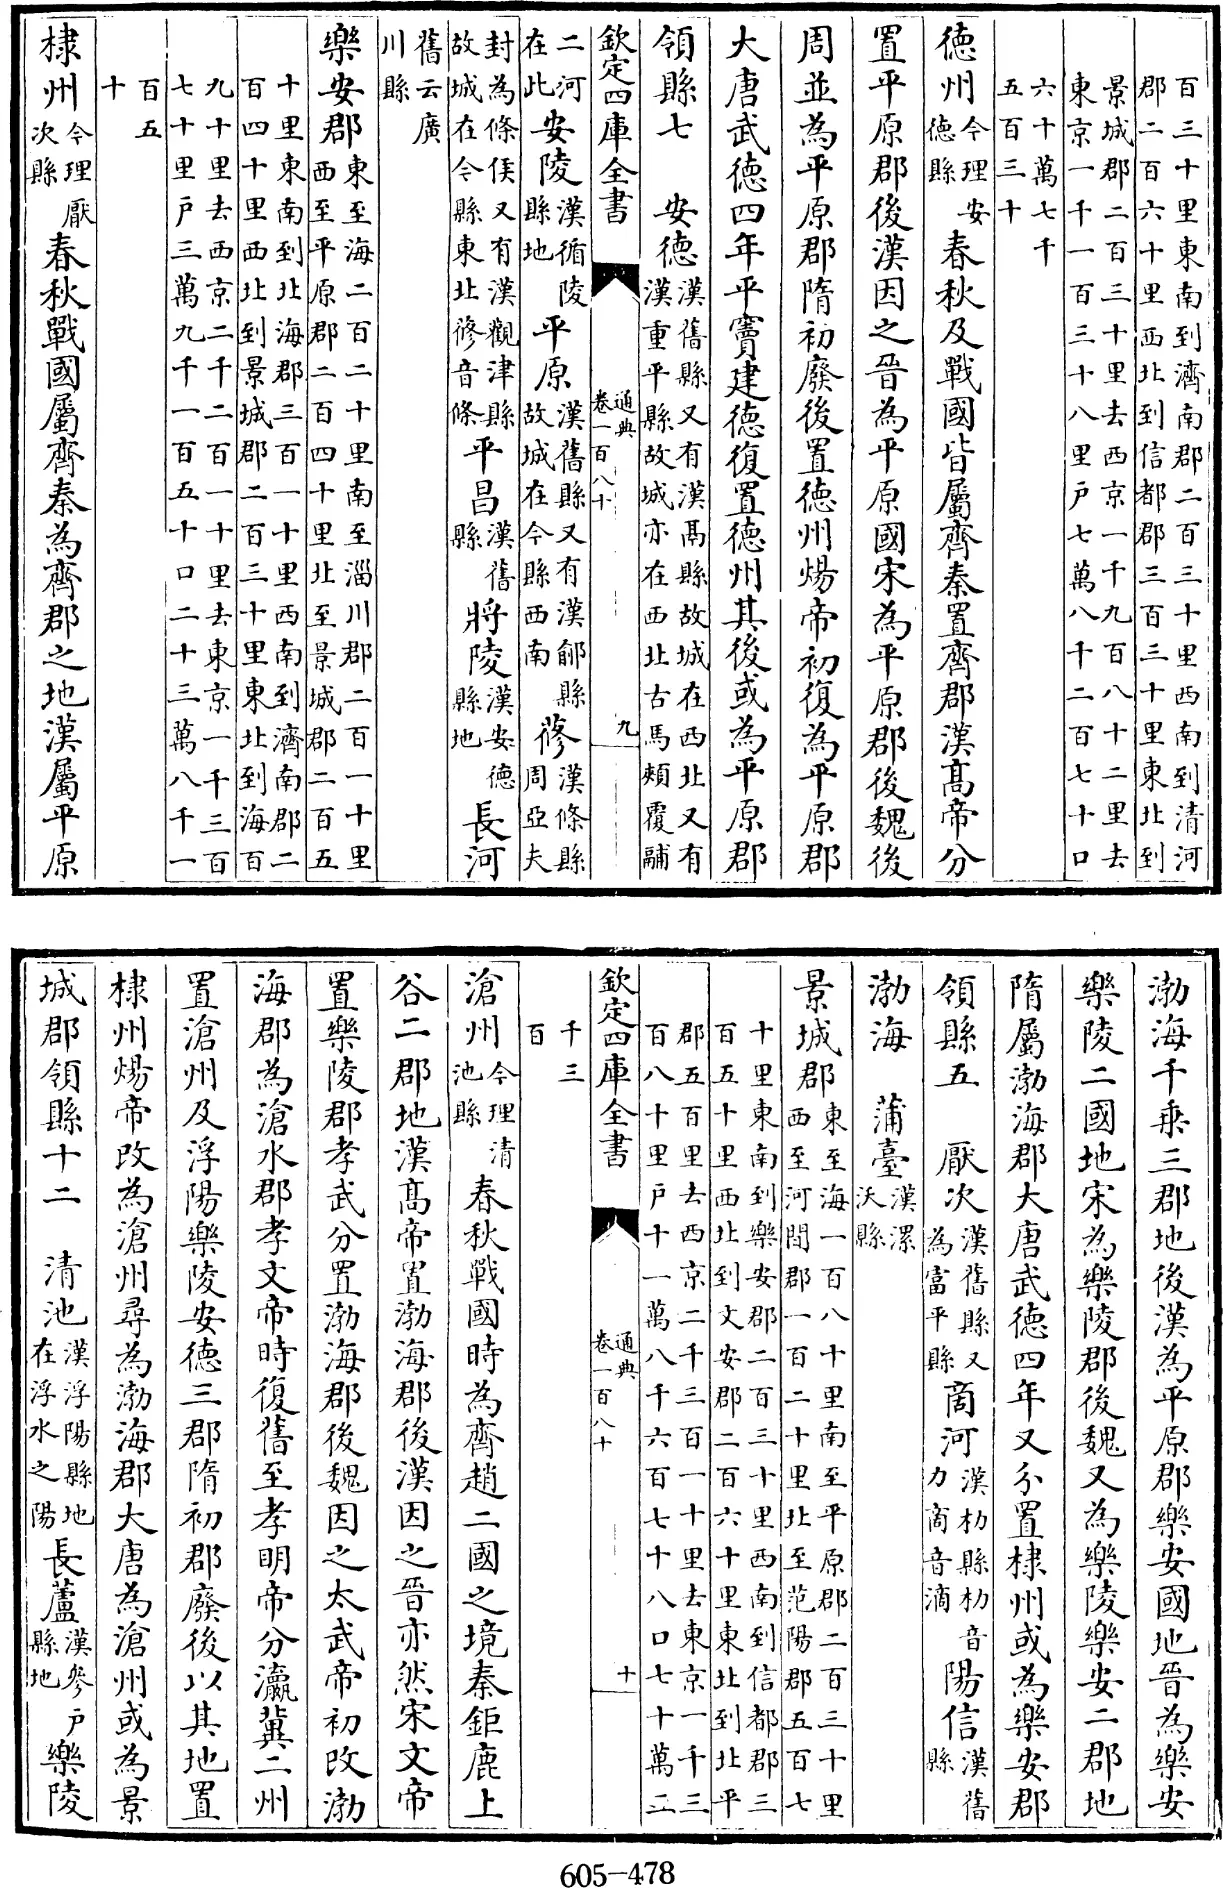 百三十里東南到濟南郡二百三十里西南到清河
郡二百六十里西北到信都郡三百三十里東北到
景城郡二百三十里去西京一千九百八十二里去
東京一千一百三十八里戶七萬八千二百七十口
六十萬七千
五百三十
德州今理安德縣春秋及戰國皆屬齊秦置齊郡漢髙帝分
置平原郡後漢因之晉為平原國宋為平原郡後魏後
周並為平原郡隋初廢後置德州煬帝初復為平原郡
大唐武德四年平竇建德復置德州其後或為平原郡
領縣七　安德漢舊縣又有漢鬲縣故城在西北又有漢重平縣故城亦在西北古馬頰覆鬴
欽定四庫全書　通典卷一百八十　九
二河在此安陵漢循陵縣地平原漢舊縣又有漢鄃縣故城在今縣西南蓨漢條縣周亞夫
封為條侯又有漢觀津縣故城在今縣東北蓨音條平昌漢舊縣將陵漢安德縣地長河
舊云廣川縣
樂安郡東至海二百二十里南至淄川郡二百一十里西至平原郡二百四十里北至景城郡二百五
十里東南到北海郡三百一十里西南到濟南郡二
百四十里西北到景城郡二百三十里東北到海百
九十里去西京二千二百一十里去東京一千三百
七十里戶三萬九千一百五十口二十三萬八千一
百五
十
棣州今理厭次縣春秋戰國屬齊秦為齊郡之地漢屬平原
渤海千乗三郡地後漢為平原郡樂安國地晉為樂安
樂陵二國地宋為樂陵郡後魏又為樂陵樂安二郡地
隋屬渤海郡大唐武德四年又分置棣州或為樂安郡
領縣五　厭次漢舊縣又為富平縣商河漢朸縣朸音力商音滴陽信漢舊縣
渤海　蒲臺漢漯沃縣
景城郡東至海一百八十里南至平原郡二百三十里西至河間郡一百二十里北至范陽郡五百七
十里東南到樂安郡二百三十里西南到信都郡三
百五十里西北到文安郡二百六十里東北到北平
郡五百里去西京二千三百一十里去東京一千三
百八十里戶十一萬八千六百七十八口七十萬二
欽定四庫全書　通典卷一百八十　十
千三
百
滄州今理清池縣春秋戰國時為齊趙二國之境秦鉅鹿上
谷二郡地漢髙帝置渤海郡後漢因之晉亦然宋文帝
置樂陵郡孝武分置渤海郡後魏因之太武帝初改渤
海郡為滄水郡孝文帝時復舊至孝明帝分瀛冀二州
置滄州及浮陽樂陵安德三郡隋初郡廢後以其地置
棣州煬帝改為滄州尋為渤海郡大唐為滄州或為景
城郡領縣十二　清池漢浮陽縣地在浮水之陽長蘆漢參戶縣地樂陵
605-478